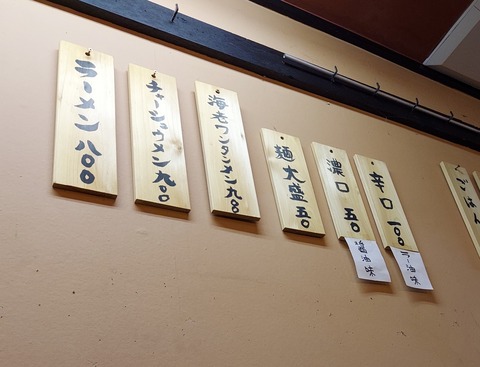 ラーメン 八〇〇
チャーシュウメン 九〇〇
海老ワンタンメン 九〇〇
麺大盛 五〇
濃口 五〇
醤油味
辛口 一〇〇
ラー油味
ごはん